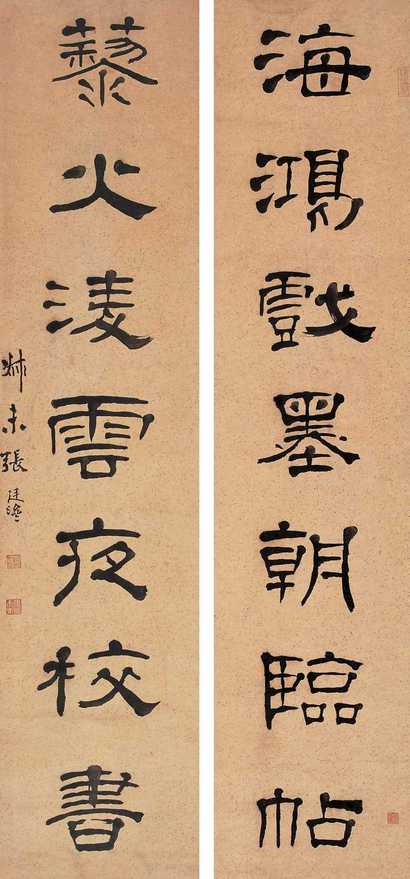 海鴻戲墨朝臨帖
藜火淩雲夜校書
叔未張廷濟